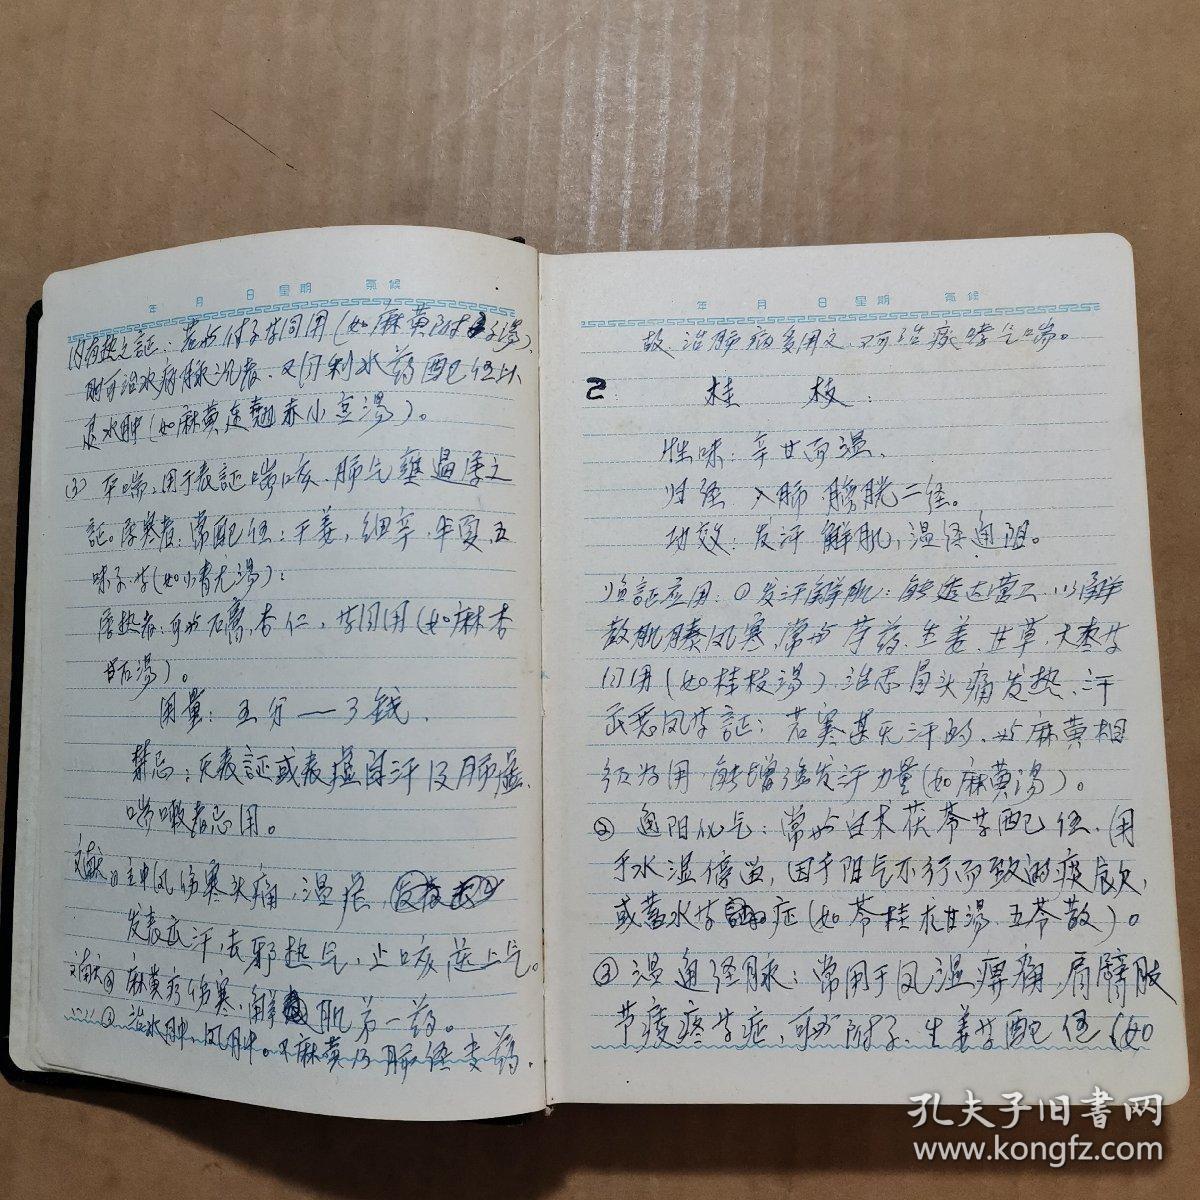 年 月 日 星期 气候
内有热之証:若与付子等同用(如麻黄附子湯)
則可治水病脉沉者。又仃利水药配伍上下
退水肿(如麻黄连翘赤小豆湯)。
③ 平喘:用于表証喘咳、肺气壅遏属之
証。属寒者:常配伍:干姜,细辛,半夏,五
味子等(如小青龙湯);
属热者:可与石膏,杏仁,等同用(如麻杏
甘石湯)。
用量:五分——3钱.
禁忌:无表証或表虚自汗及肺虚
喘咳者忌用。
文献① 主中风伤寒头痛,温疟,
发表出汗,去邪热气,止咳逆上气。
文献② 麻黄疗伤寒,解肌第一药。
③ 治水肿,风肿。又麻黄乃肺经专药,
年 月 日 星期 气候
故治肺病多用之,又可治痰哮气喘。
2 桂 枝:
性味:辛甘而温.
归经:入肺.膀胱二经。
功效:发汗解肌,温经通阳。
临証应用:①发汗解肌:能透达营卫,以解
散肌腠风寒,常与芍药,生姜,甘草,大枣等
仃用(如桂枝湯),治恶风头痛发热,汗
出恶风等証;若寒甚无汗的,与麻黄相
须为用,能增强发汗力量(如麻黄湯)。
② 通阳化气:常与白术茯苓等配伍,用
于水湿停滞,因于阳气不行而致的痰饮,
或蓄水等症(如苓桂术甘湯.五苓散)。
③ 温通经脉:常用于风湿痹痛,肩臂肢
节痠疼等症,可与附子、生姜等配伍(如
孔夫子旧书网
www.kongfz.com